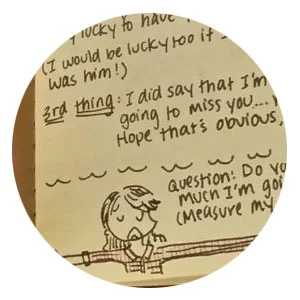 lucky to have
(I would be lucky too if I
was him!)
3rd thing: I did say that I'm
going to miss you...
Hope that's obvious,
Question: Do you
much I'm
(Measure my